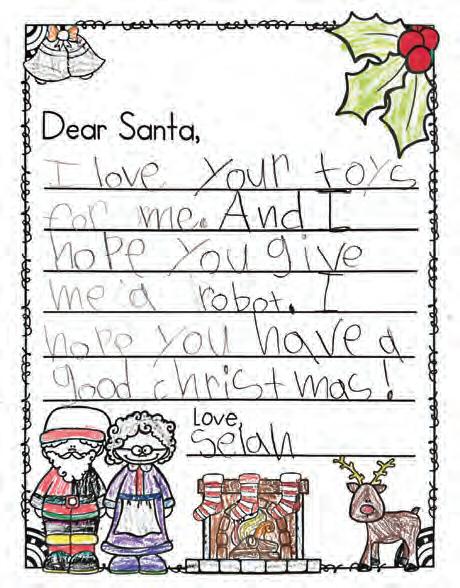 Dear Santa,
I love your toys
for me. And I
hope you give
me a robot. I
hope you have a
good christmas!
Love,
Selah